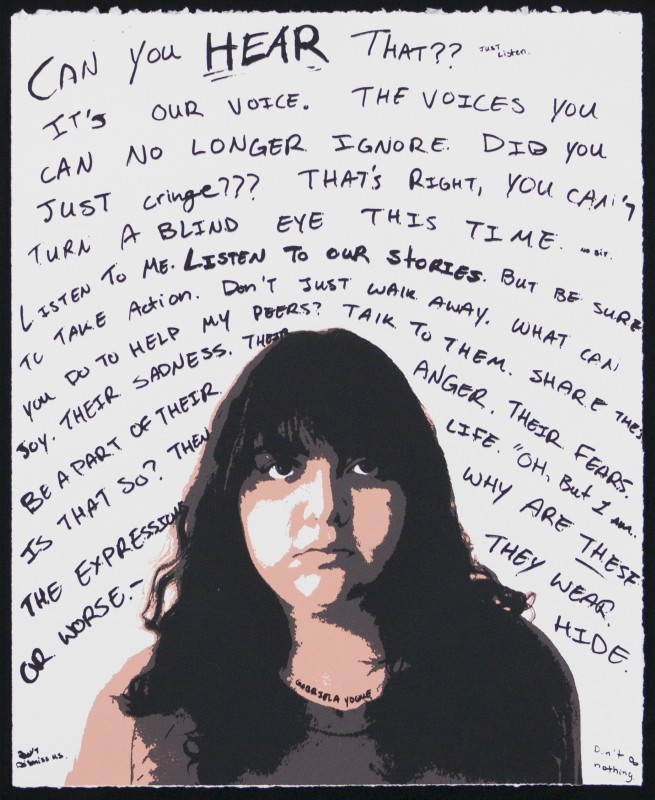 CAN YOU HEAR THAT?? Just Listen.
IT'S OUR VOICE. THE VOICES YOU
CAN NO LONGER IGNORE. DID YOU
JUST cringe??? THAT'S RIGHT, YOU CAN'T
TURN A BLIND EYE THIS TIME. ... no sir.
LISTEN TO ME. LISTEN TO OUR STORIES. BUT BE SURE
TO TAKE Action. Don't JUST WALK AWAY. WHAT CAN
YOU DO TO HELP MY PEERS? TALK TO THEM. SHARE
JOY. THEIR SADNESS. THEIR ANGER. THEIR FEARS.
BE A PART OF THEIR LIFE. "OH, But I am.
IS THAT SO? THEN WHY ARE THESE
THE EXPRESSIONS THEY WEAR.
OR WORSE.- HIDE.
GABRIELA
Dismiss us.
Don't Do
nothing.